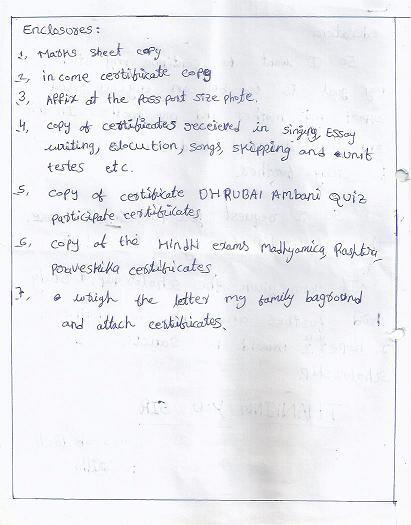 Enclosures:
1, Marks sheet copy
2, income certificate copy
3, Affix at the pass port size photo.
4, copy of certificates received in singing, Essay
writing, Elocution, songs, skipping and unit
testes etc.
5, copy of certificate DHRUBAI Ambani QUIZ
participate certificates
6, copy of the Hindhi exams madhyamica, Rashtra,
praveshika certificates.
7, wrigh the letter my family baground
and attach certificates.
THANKING YOU SIR